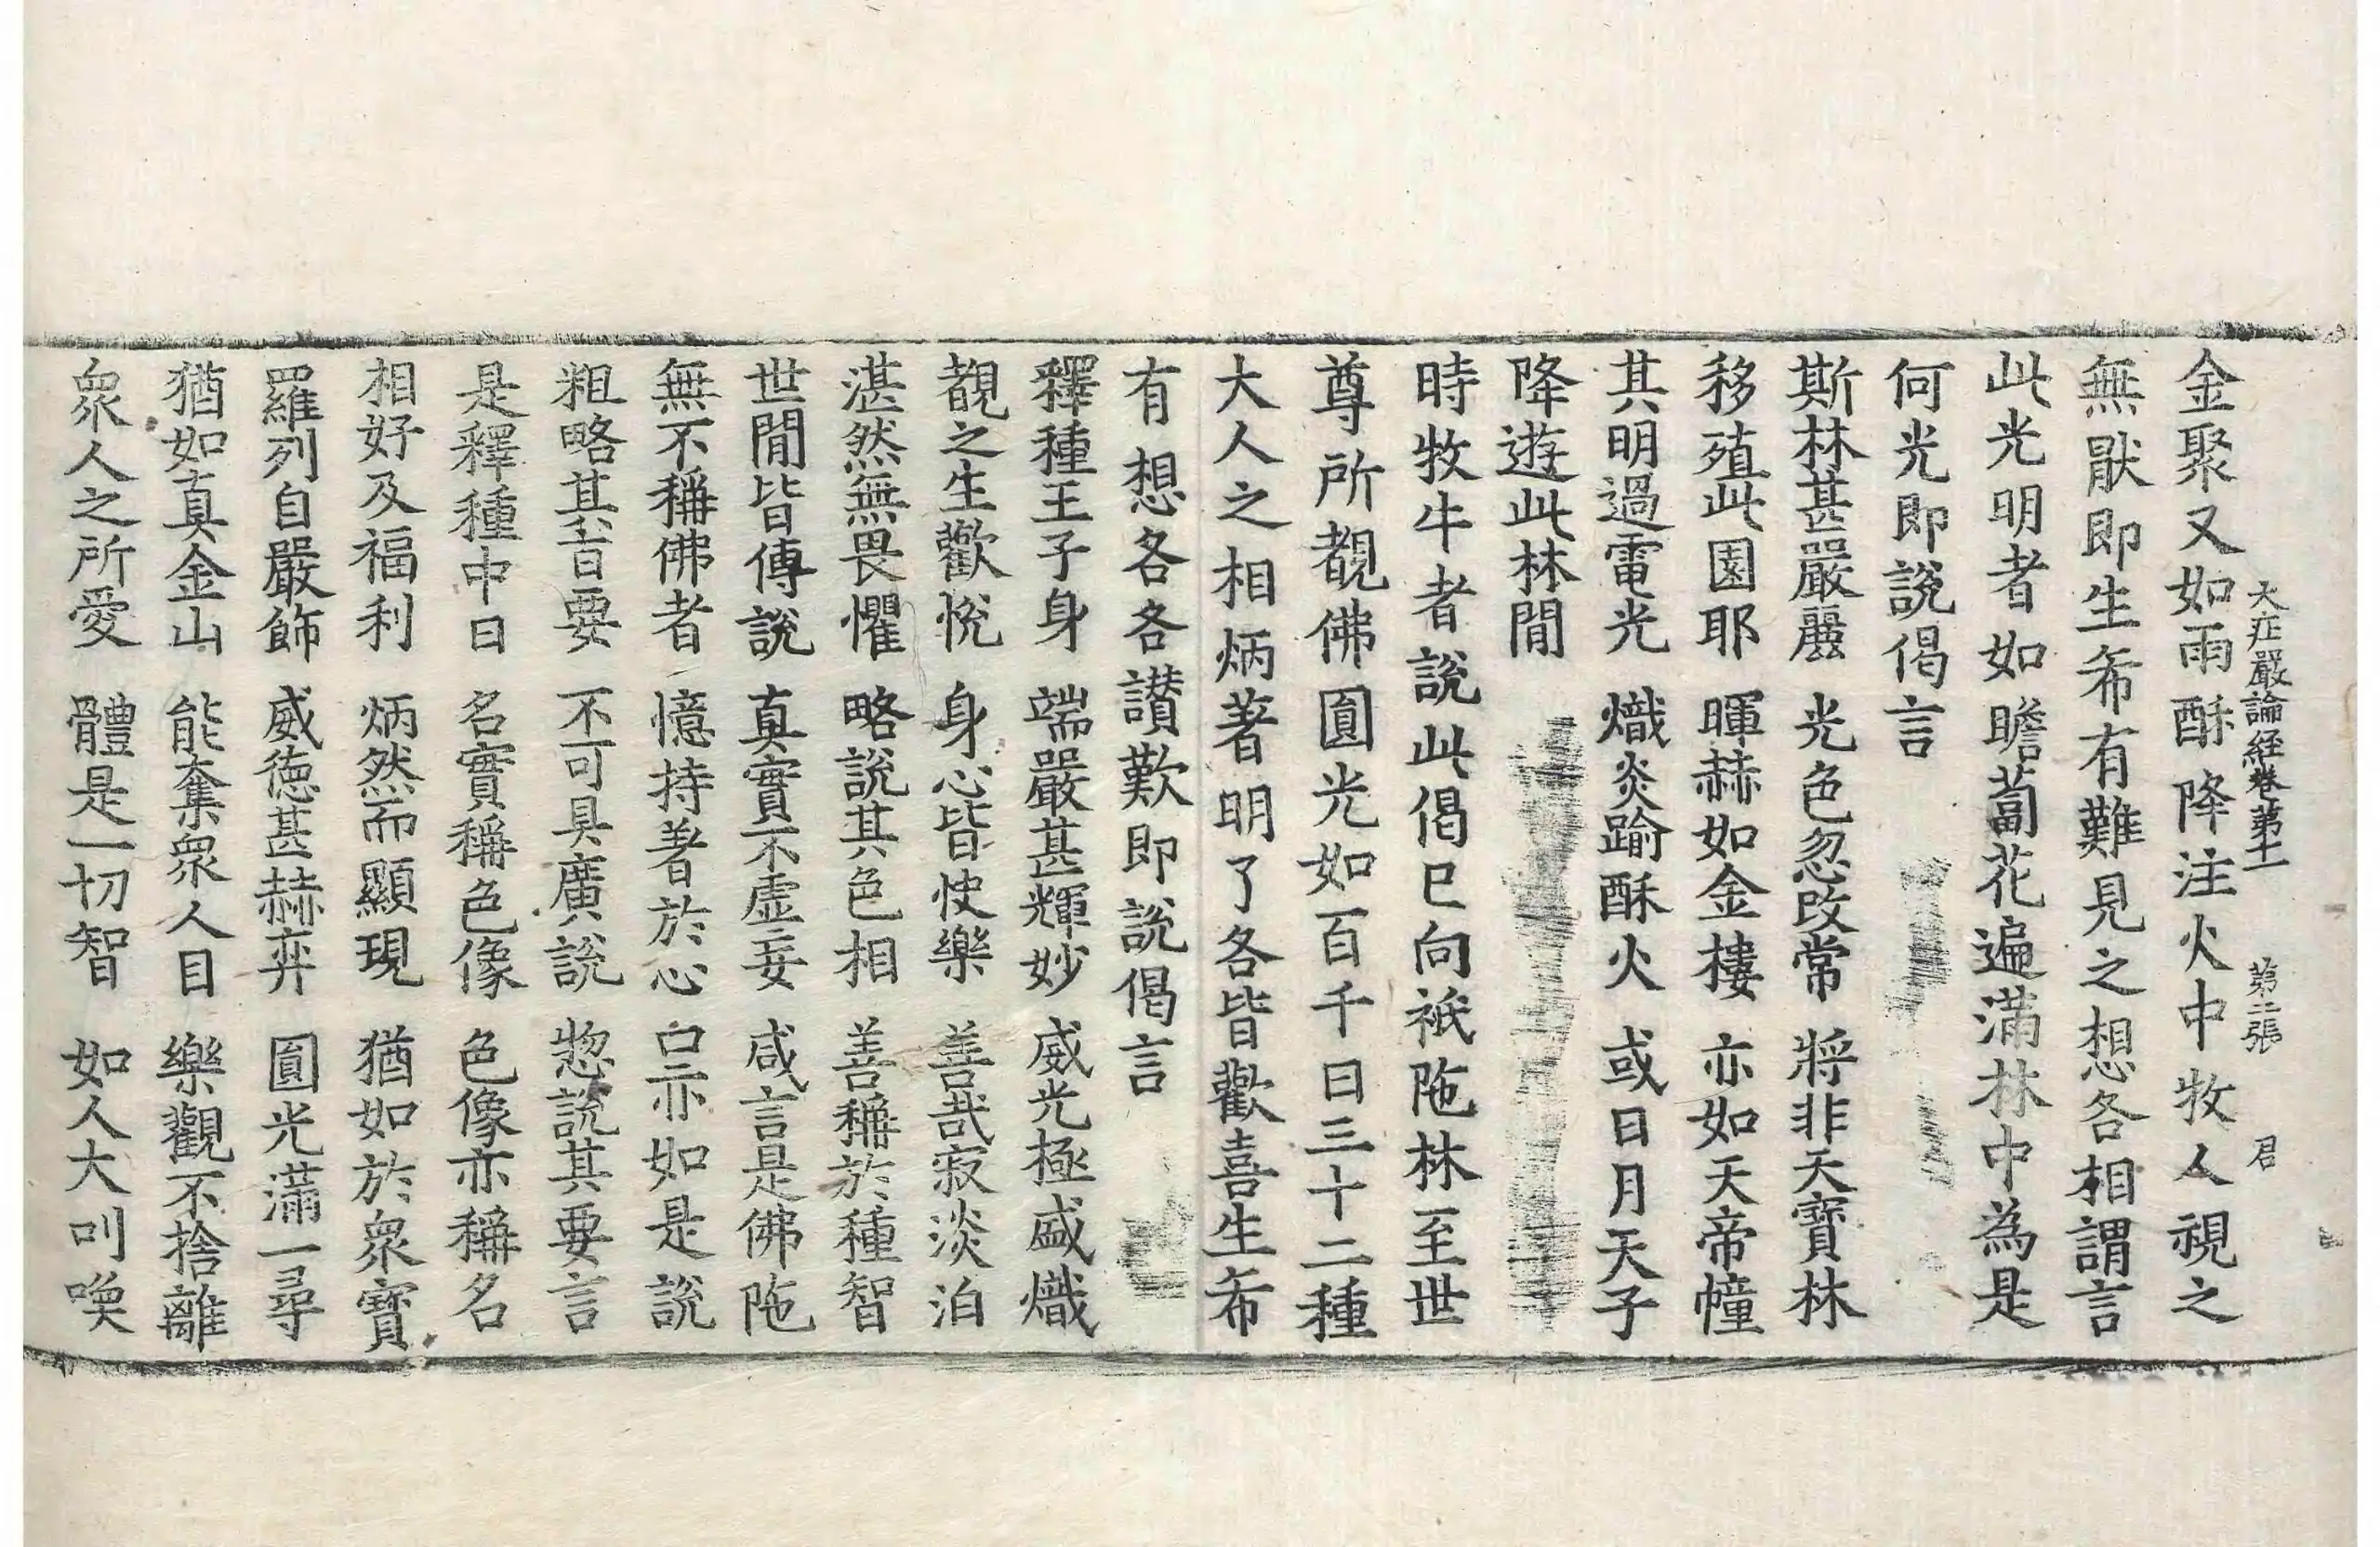 大莊嚴論経卷第十一 第二張 君
金聚又如雨酥降注火中牧人視之
無猒即生希有難見之想各相謂言
此光明者如瞻蔔花遍滿林中為是
何光即說偈言
斯林甚嚴麗 光色忽改常 將非天寶林
移殖此園耶 暉赫如金樓 亦如天帝幢
其明過電光 熾炎踰酥火 或日月天子
降遊此林閒
時牧牛者說此偈已向祇陁林至世
尊所覩佛圓光如百千日三十二種
大人之相炳著明了各皆歡喜生希
有想各各讃歎即說偈言
釋種王子身 端嚴甚輝妙 威光極盛熾
覩之生歡悅 身心皆快樂 善哉寂淡泊
湛然無畏懼 略說其色相 善稱於種智
世閒皆傳說 真實不虛妄 咸言是佛陁
無不稱佛者 憶持著於心 口亦如是說
粗略其旨要 不可具廣說 惣說其要言
是釋種中日 名實稱色像 色像亦稱名
相好及福利 炳然而顯現 猶如於衆寶
羅列自嚴飾 威徳甚赫弈 圓光滿一尋
猶如真金山 能奪衆人目 樂觀不捨離
衆人之所愛 體是一切智 如人大叫喚